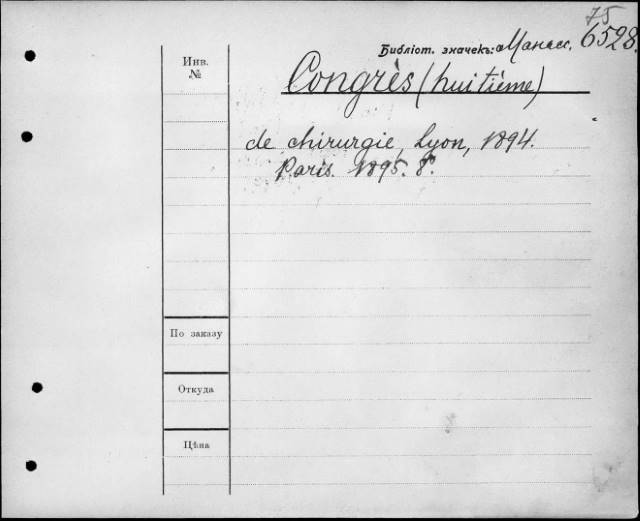 75
Библіот. значекъ: Манасс. 6528.
Инв.
№
Congrès (huitième)
de chirurgie, Lyon, 1894.
Paris. 1895. 8°.
По заказу
Откуда
Цѣна